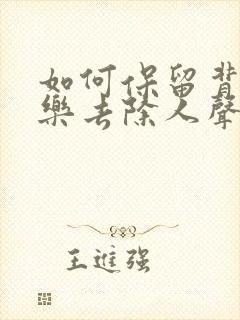 如何保留背
樂去除人聲
王進强